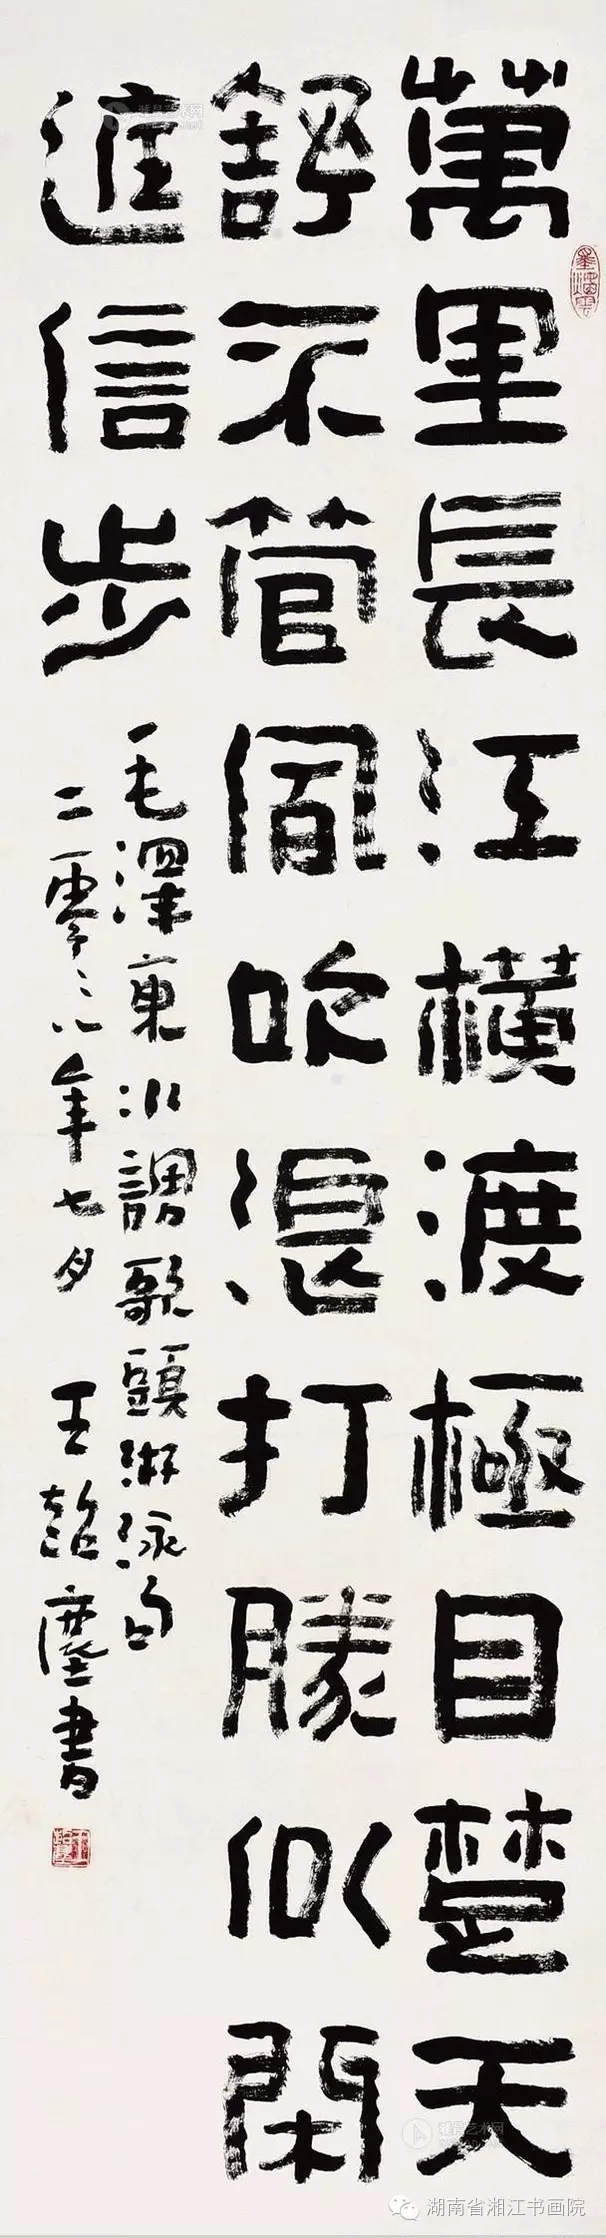 萬里長江橫渡極目楚天
舒不管風吹浪打勝似閑
庭信步
毛澤東水調歌頭游泳句
二零〻八年七月 王超塵書
雅昌艺术网
湖南省湘江书画院